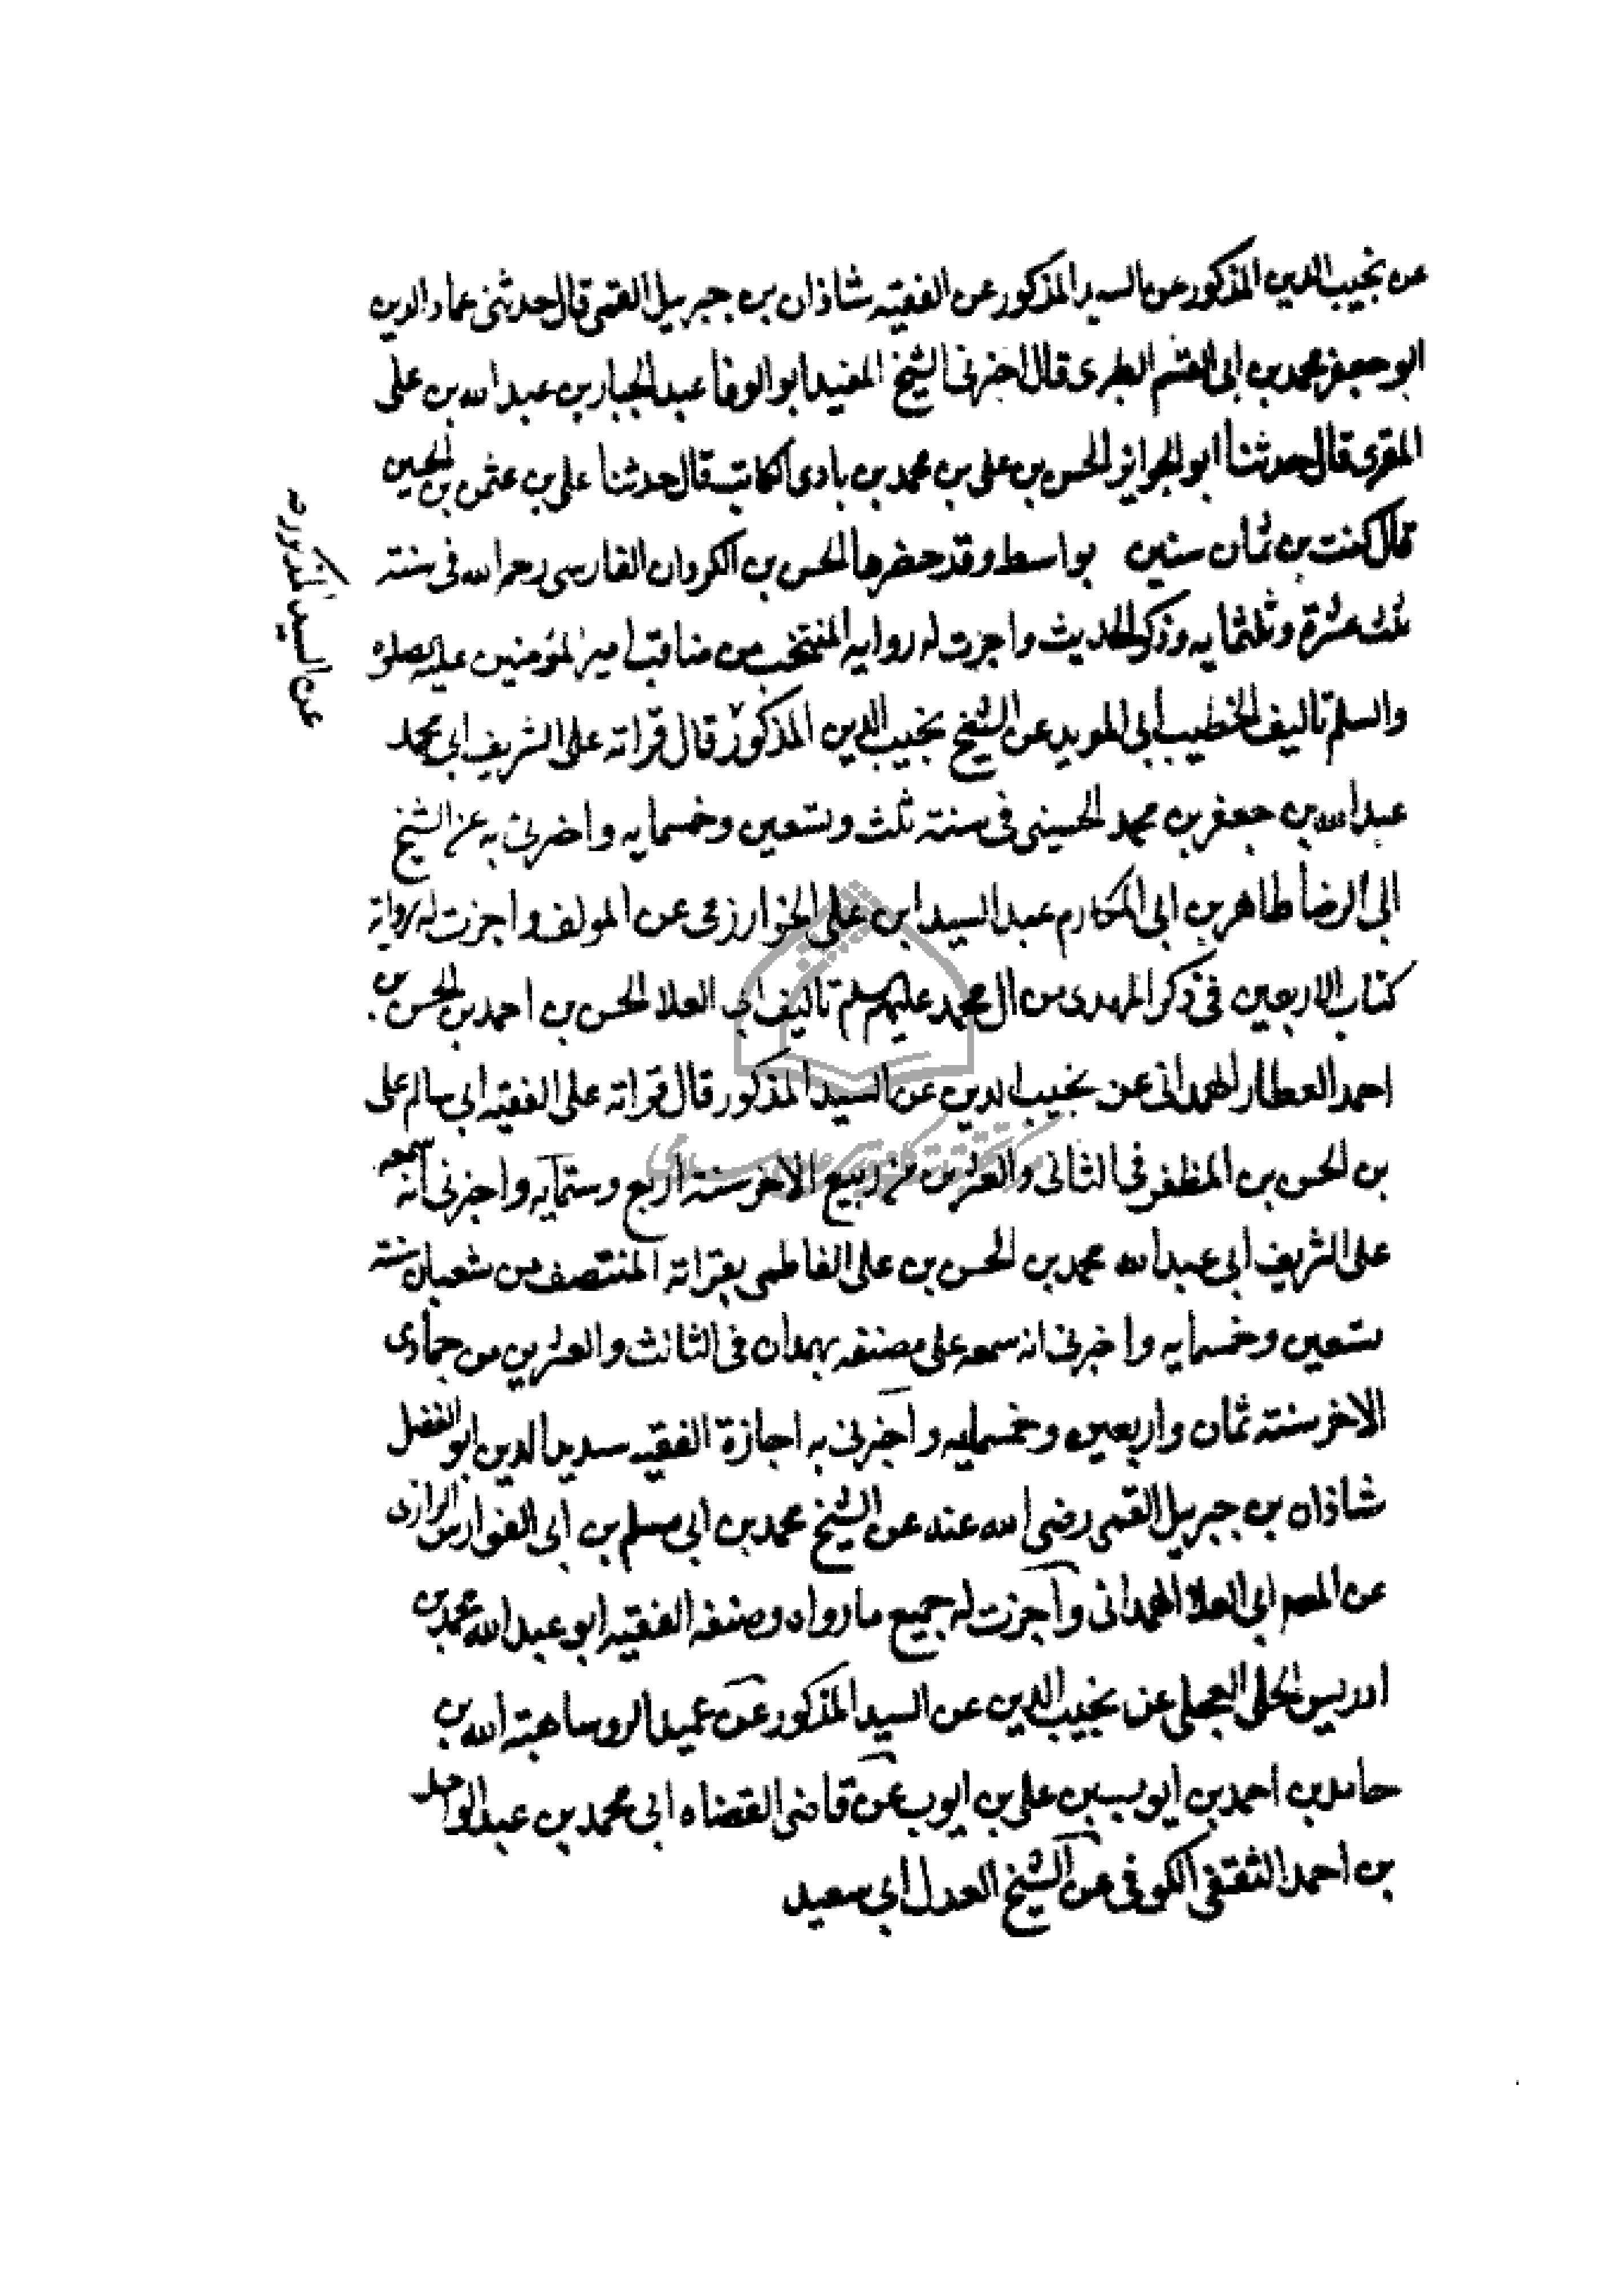 عن نجيب الدين المذكور عن السيد المذكور عن الفقيه شاذان بن جبرييل القمى قال حدثنى عماد الدين
ابو جعفر محمد بن ابى القسم الطبرى قال اخبرنى الشيخ المفيد ابو الوفا عبد الجبار بن عبد الله بن على
المقرى قال حدثنا ابو الجوايز الحسن بن على بن محمد بن بادى الكاتب قال حدثنا على بن عثمن بن الحسين
قال كنت بن ثمان سنين بواسط وقد حضرها الحسن بن الكردان الفارسى رحمه الله فى سنة
ثلث عشرة وثلثمايه وذكر الحديث واجزت له روايه المنتخب من مناقب امير المؤمنين عليه الصلوه
والسلم تاليف الخطيب ابى المويد عن الشيخ نجيب الدين المذكور قال قراته على الشريف ابى محمد
عبد الله بن جعفر بن محمد الحسينى فى سنة ثلث وتسعين وخمسمايه واخبرنى به عن الشيخ
ابى الرضا طاهر بن ابى المكارم عبد السيد ابن على الخوارزمى عن المولف واجزت له رواية
كتاب الاربعين فى ذكر المهدى من ال محمد عليهم سلم تاليف ابى العلا الحسن بن احمد بن الحسن بن
احمد العطار الهمدانى عن نجيب الدين عن السيد المذكور قال قراته على الفقيه ابى سالم على
بن الحسن بن المظفر فى الثانى والعشرين من ربيع الاخر سنة اربع وستمايه واخبرنى انه سمعه
على الشريف ابى عبد الله محمد بن الحسن بن على الفاطمى بقراته المنتصف من شعبان سنة
تسعين وخمسمايه واخبرنى انه سمعه على مصنفه بهمدان فى الثالث والعشرين من جمادى
الاخر سنة ثمان واربعين وخمسمايه واخبرنى به اجازة الفقيه سديد الدين ابو الفضل
شاذان بن جبرييل القمى رضى الله عنه عن الشيخ محمد بن ابى مسلم بن ابى الفوارس الرازى
عن المصم ابى العلا الهمدانى واجزت له جميع ما رواه وصنفه الفقيه ابو عبد الله محمد بن
ادريس الحلى العجلى عن نجيب الدين عن السيد المذكور عن عميد الروسا هبة الله بن
حامد بن احمد بن ايوب بن على بن ايوب عن قاضى القضاه ابى محمد بن عبد الواحد
بن احمد الثقفى الكوفى عن الشيخ العدل ابى سعيد
عن السيد المذكور